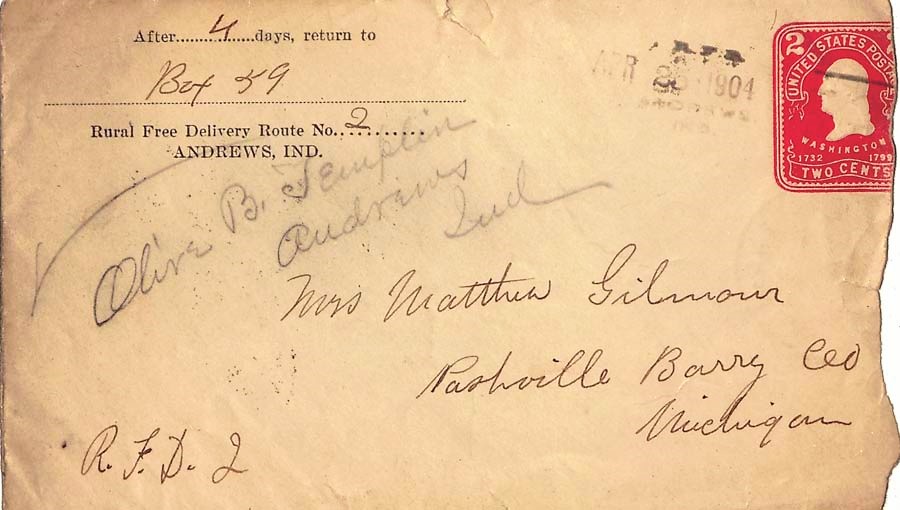 After.........4......days, return to
Box 59
Rural Free Delivery Route No..2..........
ANDREWS, IND.
Olive B. Templin
Andrews
Ind
APR 26 1904
2
UNITED STATES POSTA
WASHINGTON
1732 1799
TWO CENTS
Mrs Matthew Gilmour
Nashville Barry Co
Michigan
R. F. D. 2